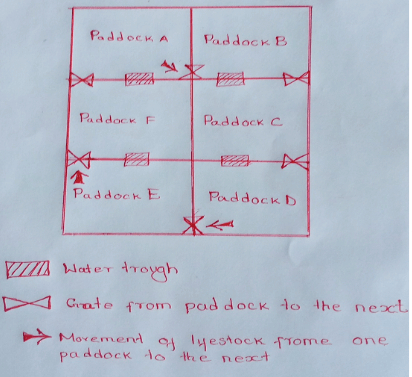 Paddock A
Paddock B
Paddock F
Paddock C
Paddock E
Paddock D
Water trough
Grate from paddock to the next
Movement of lyestock frome one
paddock to the next